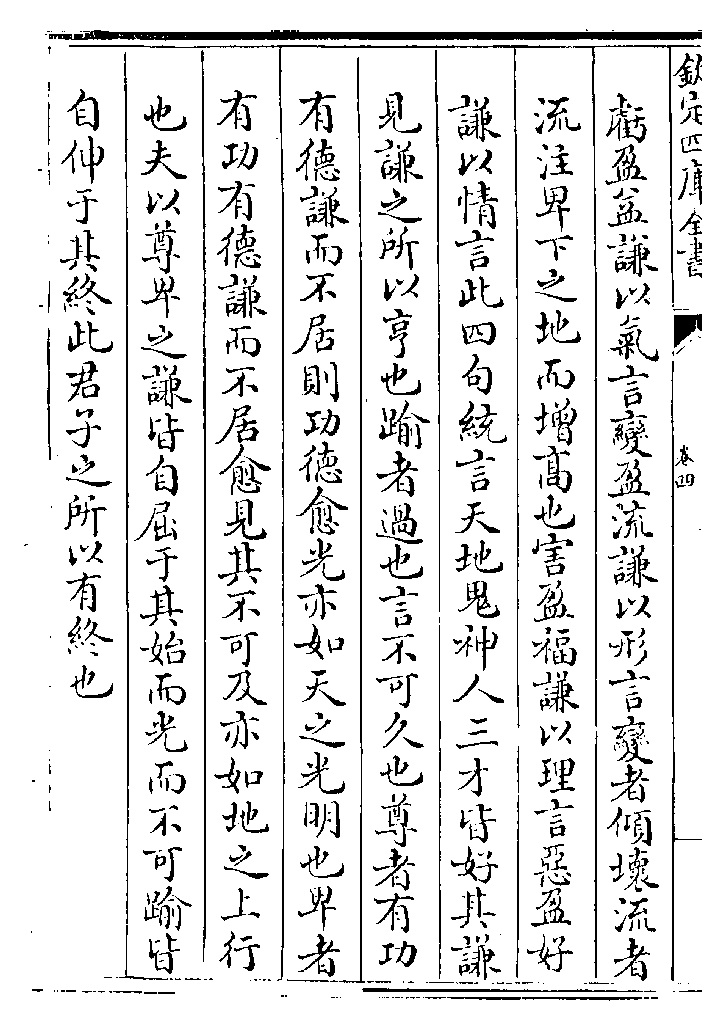 欽定四庫全書
卷四
虧盈益謙以氣言變盈流謙以形言變者傾壞流者
流注卑下之地而增髙也害盈福謙以理言惡盈好
謙以情言此四句統言天地鬼神人三才皆好其謙
見謙之所以亨也踰者過也言不可久也尊者有功
有德謙而不居則功德愈光亦如天之光明也卑者
有功有德謙而不居愈見其不可及亦如地之上行
也夫以尊卑之謙皆自屈于其始而光而不可踰皆
自伸于其終此君子之所以有終也